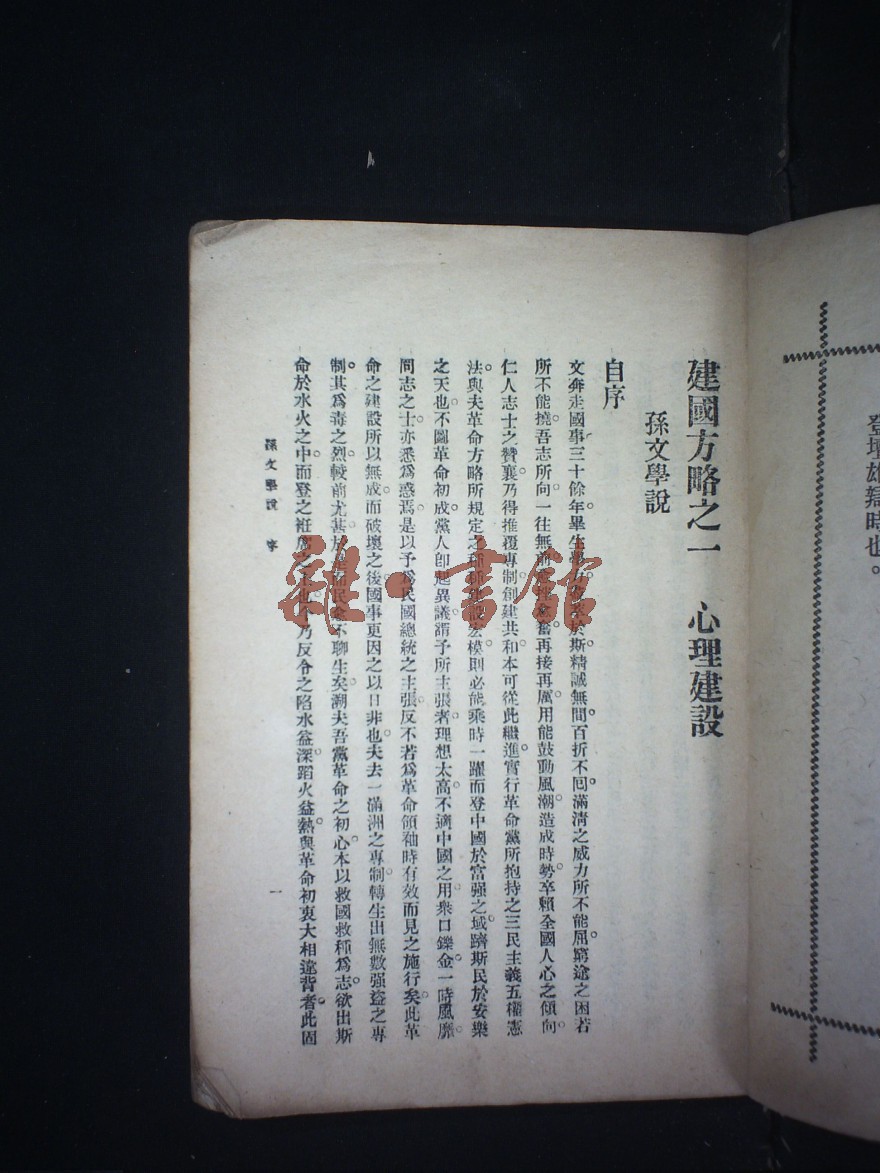 登壇雄辯時也。
建國方略之一 心理建設
孫文學說
自序
文奔走國事三十餘年。畢生學力。於斯。精誠無間。百折不囘。滿清之威力所不能屈。窮途之困若
所不能撓。吾志所向。一往無前。愈挫愈奮。再接再厲。用能鼓動風潮。造成時勢。卒賴全國人心之傾向。
仁人志士之贊襄。乃得推覆專制。創建共和。本可從此繼進。實行革命黨所抱持之三民主義五權憲
法。與夫革命方略所規定之種種建設宏模。則必能乘時一躍而登中國於富强之域。躋斯民於安樂
之天也。不圖革命初成。黨人卽起異議。謂予所主張者。理想太高。不適中國之用。衆口鑠金。一時風靡。
同志之士。亦悉爲惑焉。是以予爲民國總統之主張。反不若爲革命領袖時有效而見之施行矣。此革
命之建設所以無成。而破壞之後。國事更因之以日非也。夫去一滿洲之專制。轉生出無數强盜之專
制。其爲毒之烈。較前尤甚。於是而民愈不聊生矣。溯夫吾黨革命之初心。本以救國救種爲志。欲出斯
命於水火之中。而登之衽席之上也。今乃反令之陷水益深。蹈火益熱。與革命初衷大相違背者。此固
孫文學說 序
一
雜·書館